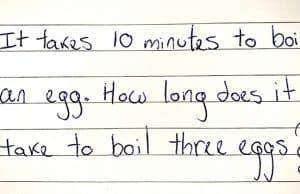 It takes 10 minutes to boi
an egg. How long does it
take to boil three eggs?